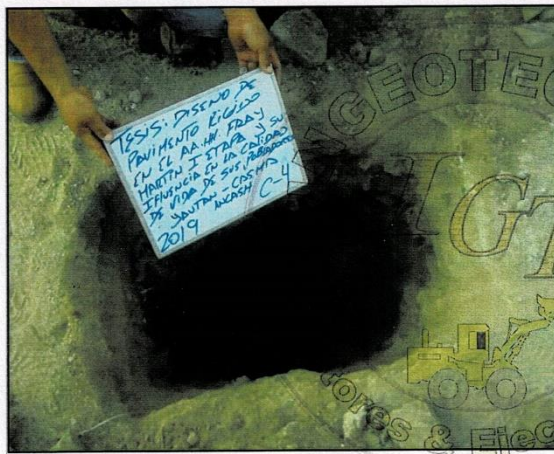 TESIS: DISEÑO DE
PAVIMENTO RIGIDO
EN EL AA.HH. FRAY
MARTIN I ETAPA Y SU
IFLUENCIA EN LA CALIDAD
DE VIDA DE SUS POBLADORES
YAUTAN - CASMA
ANCASH
2019 C-4
AGEOTEC
IGT
tores & Ejec